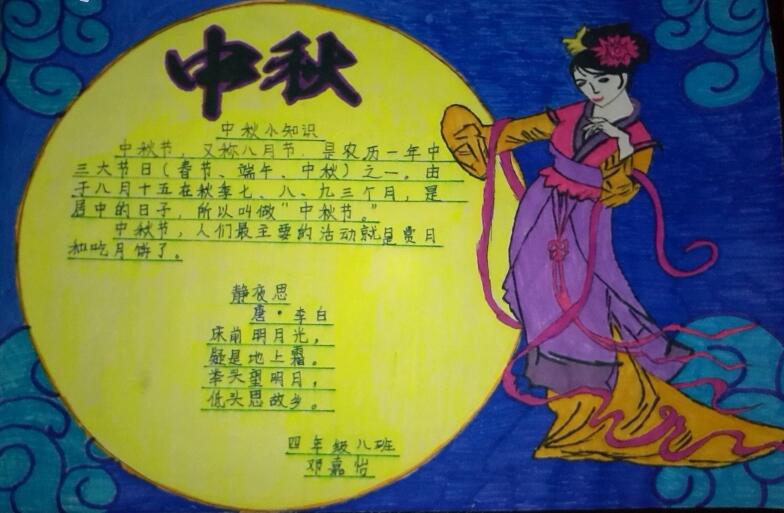 中秋
中秋小知识
中秋节，又称八月节，是农历一年中
三大节日（春节、端午、中秋）之一。由
于八月十五在秋季七、八、九三个月，是
居中的日子，所以叫做“中秋节。”
中秋节，人们最主要的活动就是赏月
和吃月饼了。
静夜思
唐·李白
床前明月光，
疑是地上霜。
举头望明月，
低头思故乡。
四年级八班
邓嘉怡